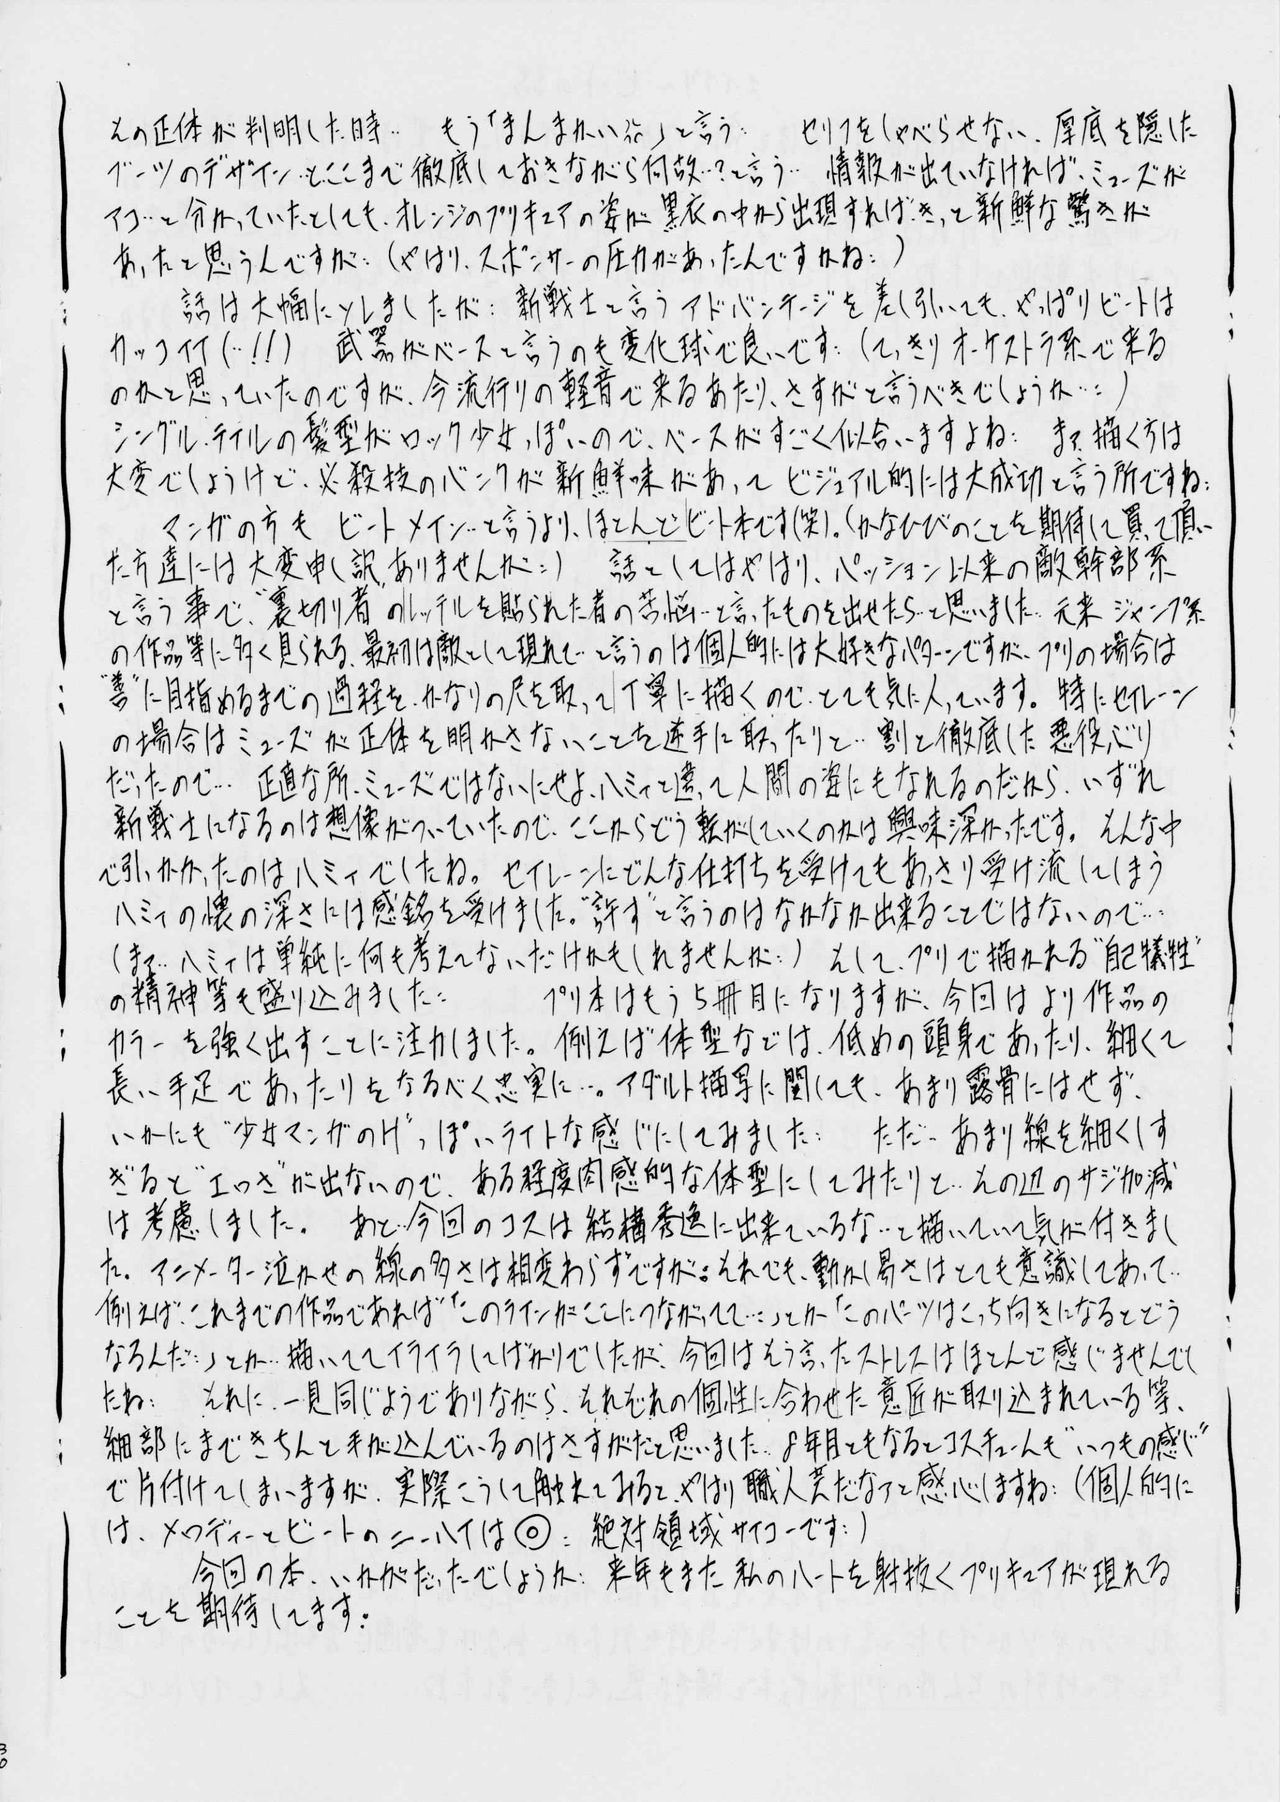 その正体が判明した時… もう「まんまかい!!」と言う… セリフをしゃべらせない、厚底を隠した
ブーツのデザイン…とここまで徹底しておきながら何故…?と言う… 情報が出ていなければ、ミューズが
アコ…と分かっていたとしても、オレンジのプリキュアの姿が黒衣の中から出現すれば、きっと新鮮な驚きが
あったと思うんですが…(やはり、スポンサーの圧力があったんですかね…)
話は大幅にソレましたが… 新戦士と言うアドバンテージを差し引いても、やっぱりビートは
カッコイイ(…!!) 武器がベースと言うのも変化球で良いです…(てっきりオーケストラ系で来る
のかと思っていたのですが、今流行りの軽音で来るあたり、さすがと言うべきでしょうか…)
シングル・テイルの髪型がロック少女っぽいので、ベースがすごく似合いますよね… まァ、描く方は
大変でしょうけど、必殺技のバンクが新鮮味があって ビジュアル的には大成功と言う所ですね…
マンガの方も ビートメイン…と言うより、ほとんどビート本です(笑)。(かなひびのことを期待して買って頂い
た方達には大変申し訳ありませんが…) 話としてはやはり、パッション以来の敵幹部系
と言う事で、“裏切り者”のレッテルを貼られた者の苦悩…と言ったものを出せたら…と思いました… 元来ジャンプ系
の作品等に多く見られる、最初は敵として現れて…と言うのは個人的には大好きなパターンですが、プリの場合は
“善”に目指めるまでの過程を、かなりの尺を取って丁寧に描くので、とても気に入っています。特にセイレーン
の場合はミューズが正体を明かさないことを逆手に取ったりと… 割と徹底した悪役ぶり
だったので… 正直な所、ミューズではないにせよ、ハミィと違って人間の姿にもなれるのだから、いずれ
新戦士になるのは想像がついていたので、ここからどう転がしていくのかは興味深かったです。そんな中
で引っかかったのはハミィでしたね。セイレーンにどんな仕打ちを受けてもあっさり受け流してしまう
ハミィの懐の深さには感銘を受けました。“許す”と言うのはなかなか出来ることではないので…
(まァ… ハミィは単純に何も考えてないだけかもしれませんが…) そして、プリで描かれる“自己犠牲”
の精神等も盛り込みました… プリ本はもう5冊目になりますが、今回はより作品の
カラーを強く出すことに注力しました。例えば体型などは、低めの頭身であったり、細くて
長い手足であったりをなるべく忠実に…。アダルト描写に関しても、あまり露骨にはせず、
いかにも“少女マンガのH”っぽいライトな感じにしてみました… ただ… あまり線を細くしす
ぎると“エロさ”が出ないので、ある程度肉感的な体型にしてみたりと… その辺のサジ加減
は考慮しました。 あと…今回のコスは結構秀逸に出来ているな…と描いていて気が付きまし
た。アニメーター泣かせの線の多さは相変わらずですが… それでも、動かし易さはとても意識してあって…
例えば、これまでの作品であれば「このラインがここにつながってて…」とか「このパーツはこっち向きになるとどう
なるんだ…」とか… 描いててイライラしてばかりでしたが、今回はそう言ったストレスはほとんど感じませんでし
たね… それに、一見同じようでありながら、それぞれの個性に合わせた意匠が取り込まれている等、
細部にまできちんと手が込んでいるのはさすがだと思いました… 8年目ともなるとコスチュームも“いつもの感じ”
で片付けてしまいますが、実際こうして触れてみると、やはり職人芸だなァと感心しますね…(個人的に
は、メロディーとビートのニーハイは◎… 絶対領域サイコーです…)
今回の本、いかがだったでしょうか… 来年もまた私のハートを射抜くプリキュアが現れる
ことを期待してます。
30